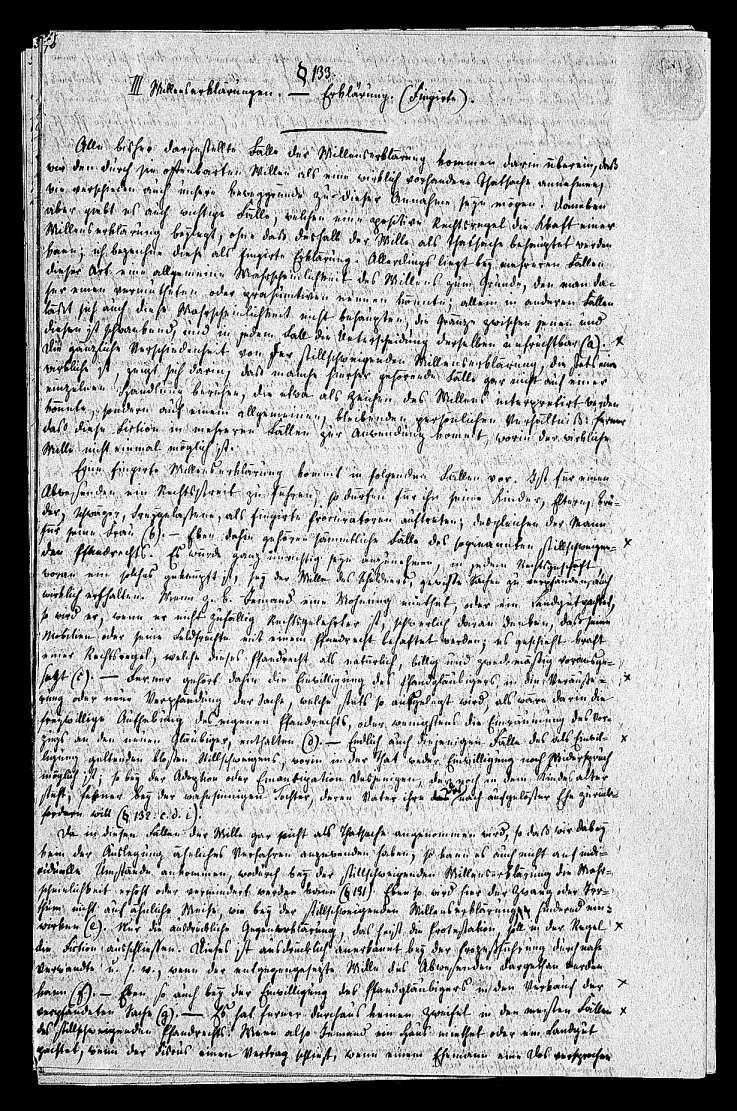 § 133.
III Willenserklärungen. — Erklärung. (Fingirte).
Alle bisher dargestellte Fälle der Willenserklärung kommen darin überein, daß
wir den durch sie offenbarten Willen als eine wirklich vorhandene Thatsache annehmen,
wie verschieden auch unsere Beweggründe zu dieser Annahme seyn mögen. Daneben
aber giebt es auch wichtige Fälle, welchen eine positive Rechtsregel die Kraft einer
Willenserklärung beylegt, ohne daß deshalb der Wille als Thatsache behauptet werden
kann; ich bezeichne diese als fingirte Erklärung. Allerdings liegt bey mehreren Fällen
dieser Art eine allgemeine Wahrscheinlichkeit des Willens zum Grunde, den man da-
her einen vermutheten oder präsumtiven nennen könnte; allein in anderen Fällen
läßt sich auch diese Wahrscheinlichkeit nicht behaupten, die Gränze zwischen jenen und
diesen ist schwankend, und in jedem Fall die Unterscheidung derselben unfruchtbar (a). ×
Die gänzliche Verschiedenheit von der stillschweigenden Willenserklärung, die stets eine
wirkliche ist, zeigt sich darin, daß manche hierher gehörende Fälle gar nicht auf einer
einzelnen Handlung beruhen, die etwa als Zeichen des Willens interpretirt werden
könnte, sondern auf einem allgemeinen, bleibenden persönlichen Verhältniß: ferner
daß diese Fiction in mehreren Fällen zur Anwendung kommt, worin der wirkliche
Wille nicht einmal möglich ist.
Eine fingirte Willenserklärung kommt in folgenden Fällen vor. Ist für einen
Abwesenden ein Rechtsstreit zu führen, so dürfen für ihn seine Kinder, Eltern, Brü-
der, Schwäger, Freygelassene, als fingirte Procuratoren auftreten; desgleichen der Mann
für seine Frau (b). — Eben dahin gehören sämmtliche Fälle des sogenannten stillschweigen- ×
den Pfandrechts. Es würde ganz unrichtig seyn anzunehmen, in jedem Rechtsgeschäft,
woran ein solches geknüpft ist, sey der Wille des Schuldners, gewisse Sachen zu verpfänden, auch
wirklich enthalten. Wenn z. B. Jemand eine Wohnung miethet, oder ein Landgut pachtet,
so wird er, wenn er nicht zufällig Rechtsgelehrter ist, schwerlich daran denken, daß seine
Mobilien oder seine Feldfrüchte mit einem Pfandrecht behaftet werden; es geschieht kraft
einer Rechtsregel, welche dieses Pfandrecht als natürlich, billig und zweckmäßig vorausge-
setzt (c). — Ferner gehört dahin die Einwilligung des Pfandgläubigers in die Veräuße- ×
rung oder neue Verpfändung der Sache, welche stets so ausgelegt wird, als wäre darin die
freywillige Aufhebung des eigenen Pfandrechts, oder wenigstens die Einräumung des Vor-
zugs an den neuen Gläubiger, enthalten (d). — Endlich auch diejenigen Fälle des als Einwil- ×
ligung geltenden bloßen Stillschweigens, worin in der That weder Einwilligung noch Widerspruch
möglich ist; so bey der Adoption oder Emancipation Desjenigen, der noch in dem Kindesalter
steht; ferner bey der wahnsinnigen Tochter, deren Vater ihre Dos nach aufgelöster Ehe zurück-
fordern will (§ 132. c. d. i).
Da in diesen Fällen der Wille gar nicht als Thatsache angenommen wird, so daß wir dabey
kein der Auslegung ähnliches Verfahren anzuwenden haben, so kann es auch nicht auf indi-
viduelle Umstände ankommen, wodurch bey der stillschweigenden Willenserklärung die Wahr-
scheinlichkeit erhöht oder vermindert werden kann (§ 131). Eben so wird hier der Zwang oder Irr-
thum nicht auf ähnliche Weise, wie bey der stillschweigenden Willenserklärung, hindernd ein-
wirken (e). Nur die ausdrückliche Gegenerklärung, das heißt die Protestation, soll in der Regel ×
die Fiction ausschließen. Dieses ist ausdrücklich anerkannt bey der Prozeßführung durch nahe
Verwandte u. s. w., wenn der entgegengesetzte Wille des Abwesenden dargethan werden
kann (f). — Eben so auch bey der Einwilligung des Pfandgläubigers in den Verkauf der ×
verpfändeten Sache (g). — Es hat ferner durchaus keinen Zweifel in den meisten Fällen ×
des stillschweigenden Pfandrechts. Wenn also Jemand ein Haus miethet oder ein Landgut
pachtet, wenn der Fiscus einen Vertrag schließt, wenn einem Ehemann eine Dos versprochen